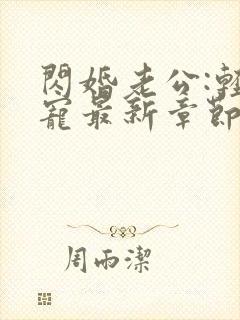 閃婚老公:
寵最新章節
周雨潔